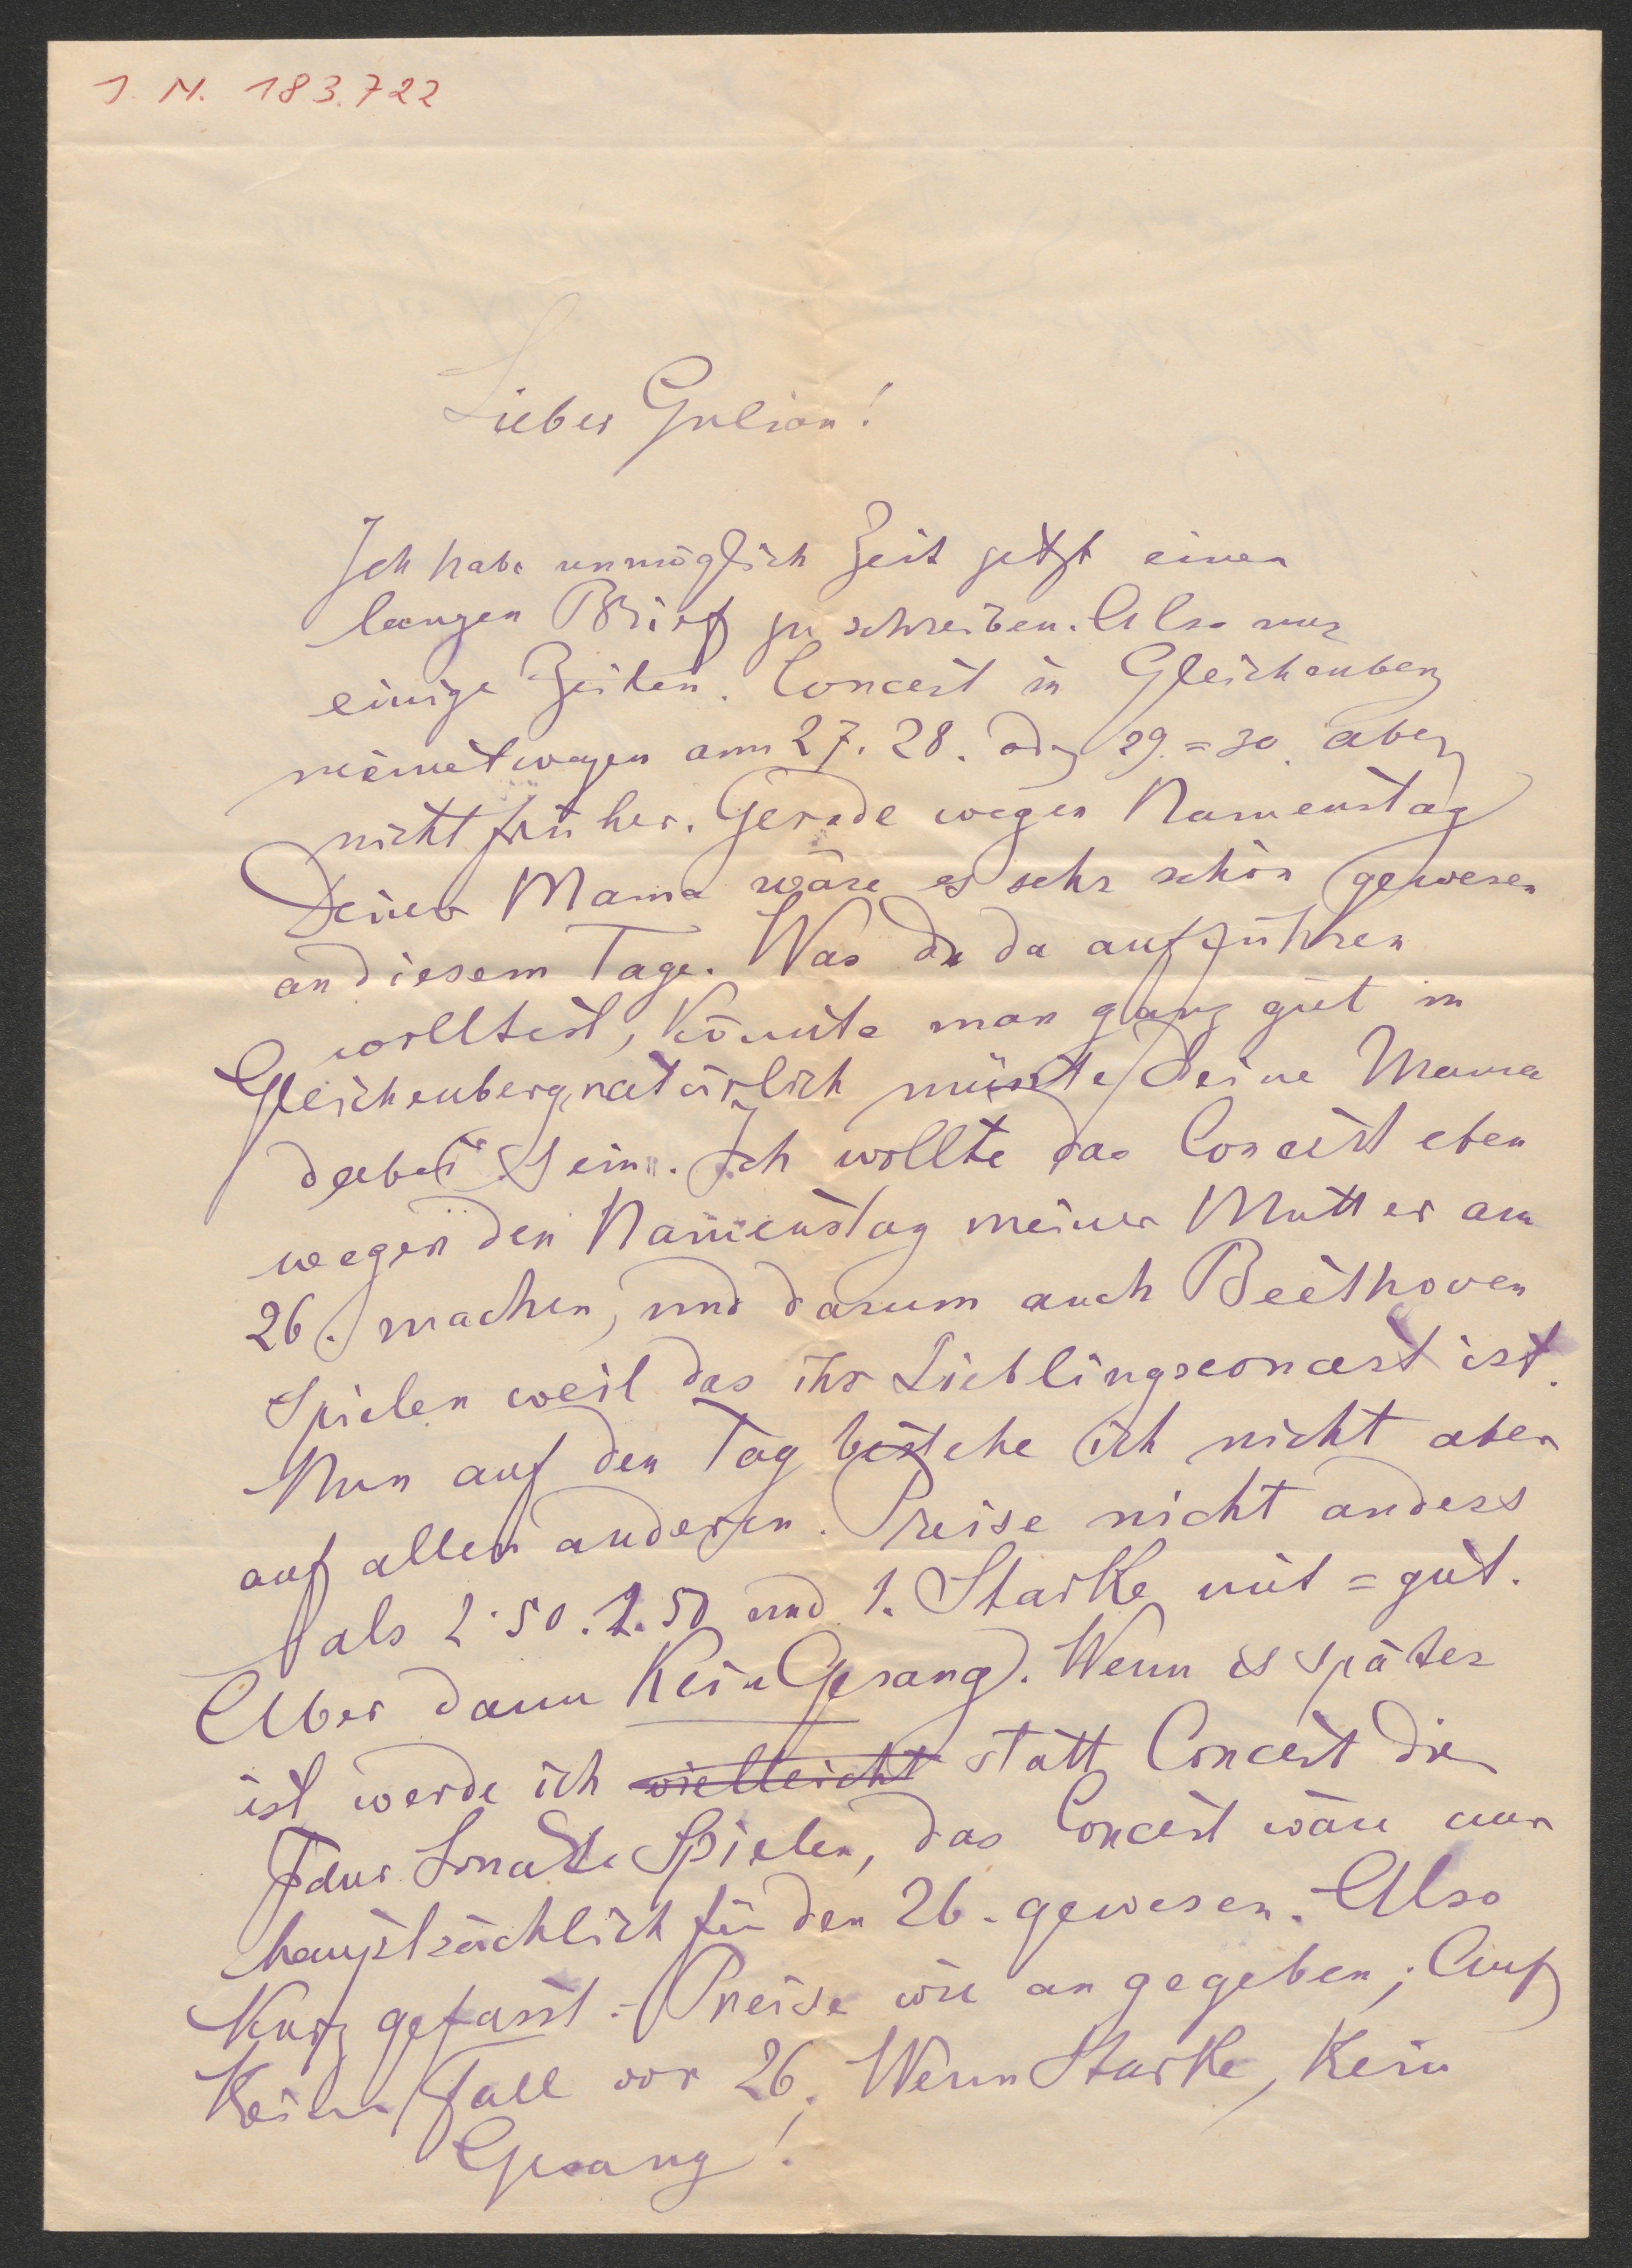 J. N. 183.722
Lieber Gulian!
Ich habe unmöglich Zeit jetzt einen
langen Brief zu schreiben. Also nur
einige Zeilen. Concert in Gleichenberg
meinetwegen am 27. 28. oder 29. = 30. aber
nicht früher. Gerade wegen Namenstag
Deiner Mama wäre es sehr schön gewesen
an diesem Tage. Was du da aufführen
wolltest, könnte man ganz gut in
Gleichenberg, natürlich müsste Deine Mama
dabei sein. Ich wollte das Concert eben
wegen den Namenstag meiner Mutter am
26. machen, und darum auch Beethoven
spielen weil das ihr Lieblingsconcert ist.
Nun auf den Tag bestehe ich nicht aber
auf allen anderen. Preise nicht anders
als 2·50. 1.50 und 1. Starke mit = gut.
Aber dann Kein Gesang. Wenn es später
ist werde ich vielleicht statt Concert die
Fdur Sonate Spielen, das Concert wäre nur
hauptsächlich für den 26. gewesen. Also
Kurz gefasst:- Preise wie angegeben; Auf
Keinen Fall vor 26. Wenn Starke, Kein
Gesang!